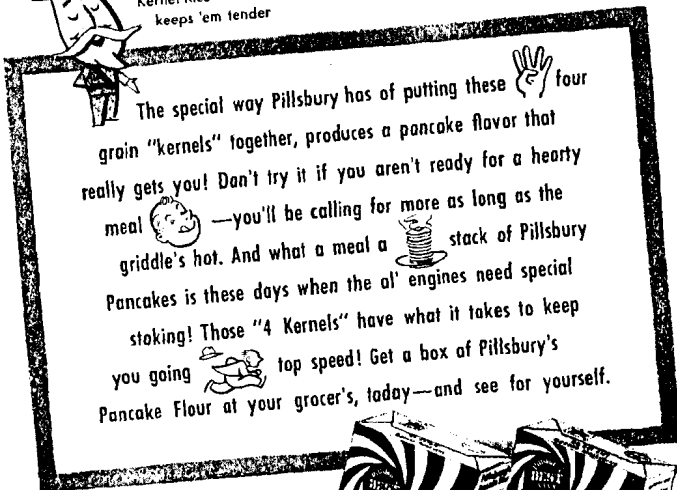 keeps 'em tender
The special way Pillsbury has of putting these four
grain "kernels" together, produces a pancake flavor that
really gets you! Don't try it if you aren't ready for a hearty
meal —you'll be calling for more as long as the
griddle's hot. And what a meal a stack of Pillsbury
Pancakes is these days when the ol' engines need special
stoking! Those "4 Kernels" have what it takes to keep
you going top speed! Get a box of Pillsbury's
Pancake Flour at your grocer's, today—and see for yourself.